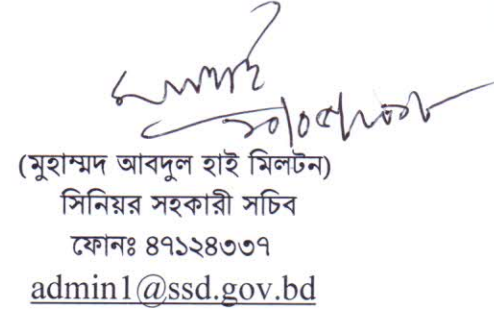 ২০/০৫/২০১৮
(মুহাম্মদ আবদুল হাই মিলটন)
সিনিয়র সহকারী সচিব
ফোনঃ ৪৭১২৪৩৩৭
admin1@ssd.gov.bd